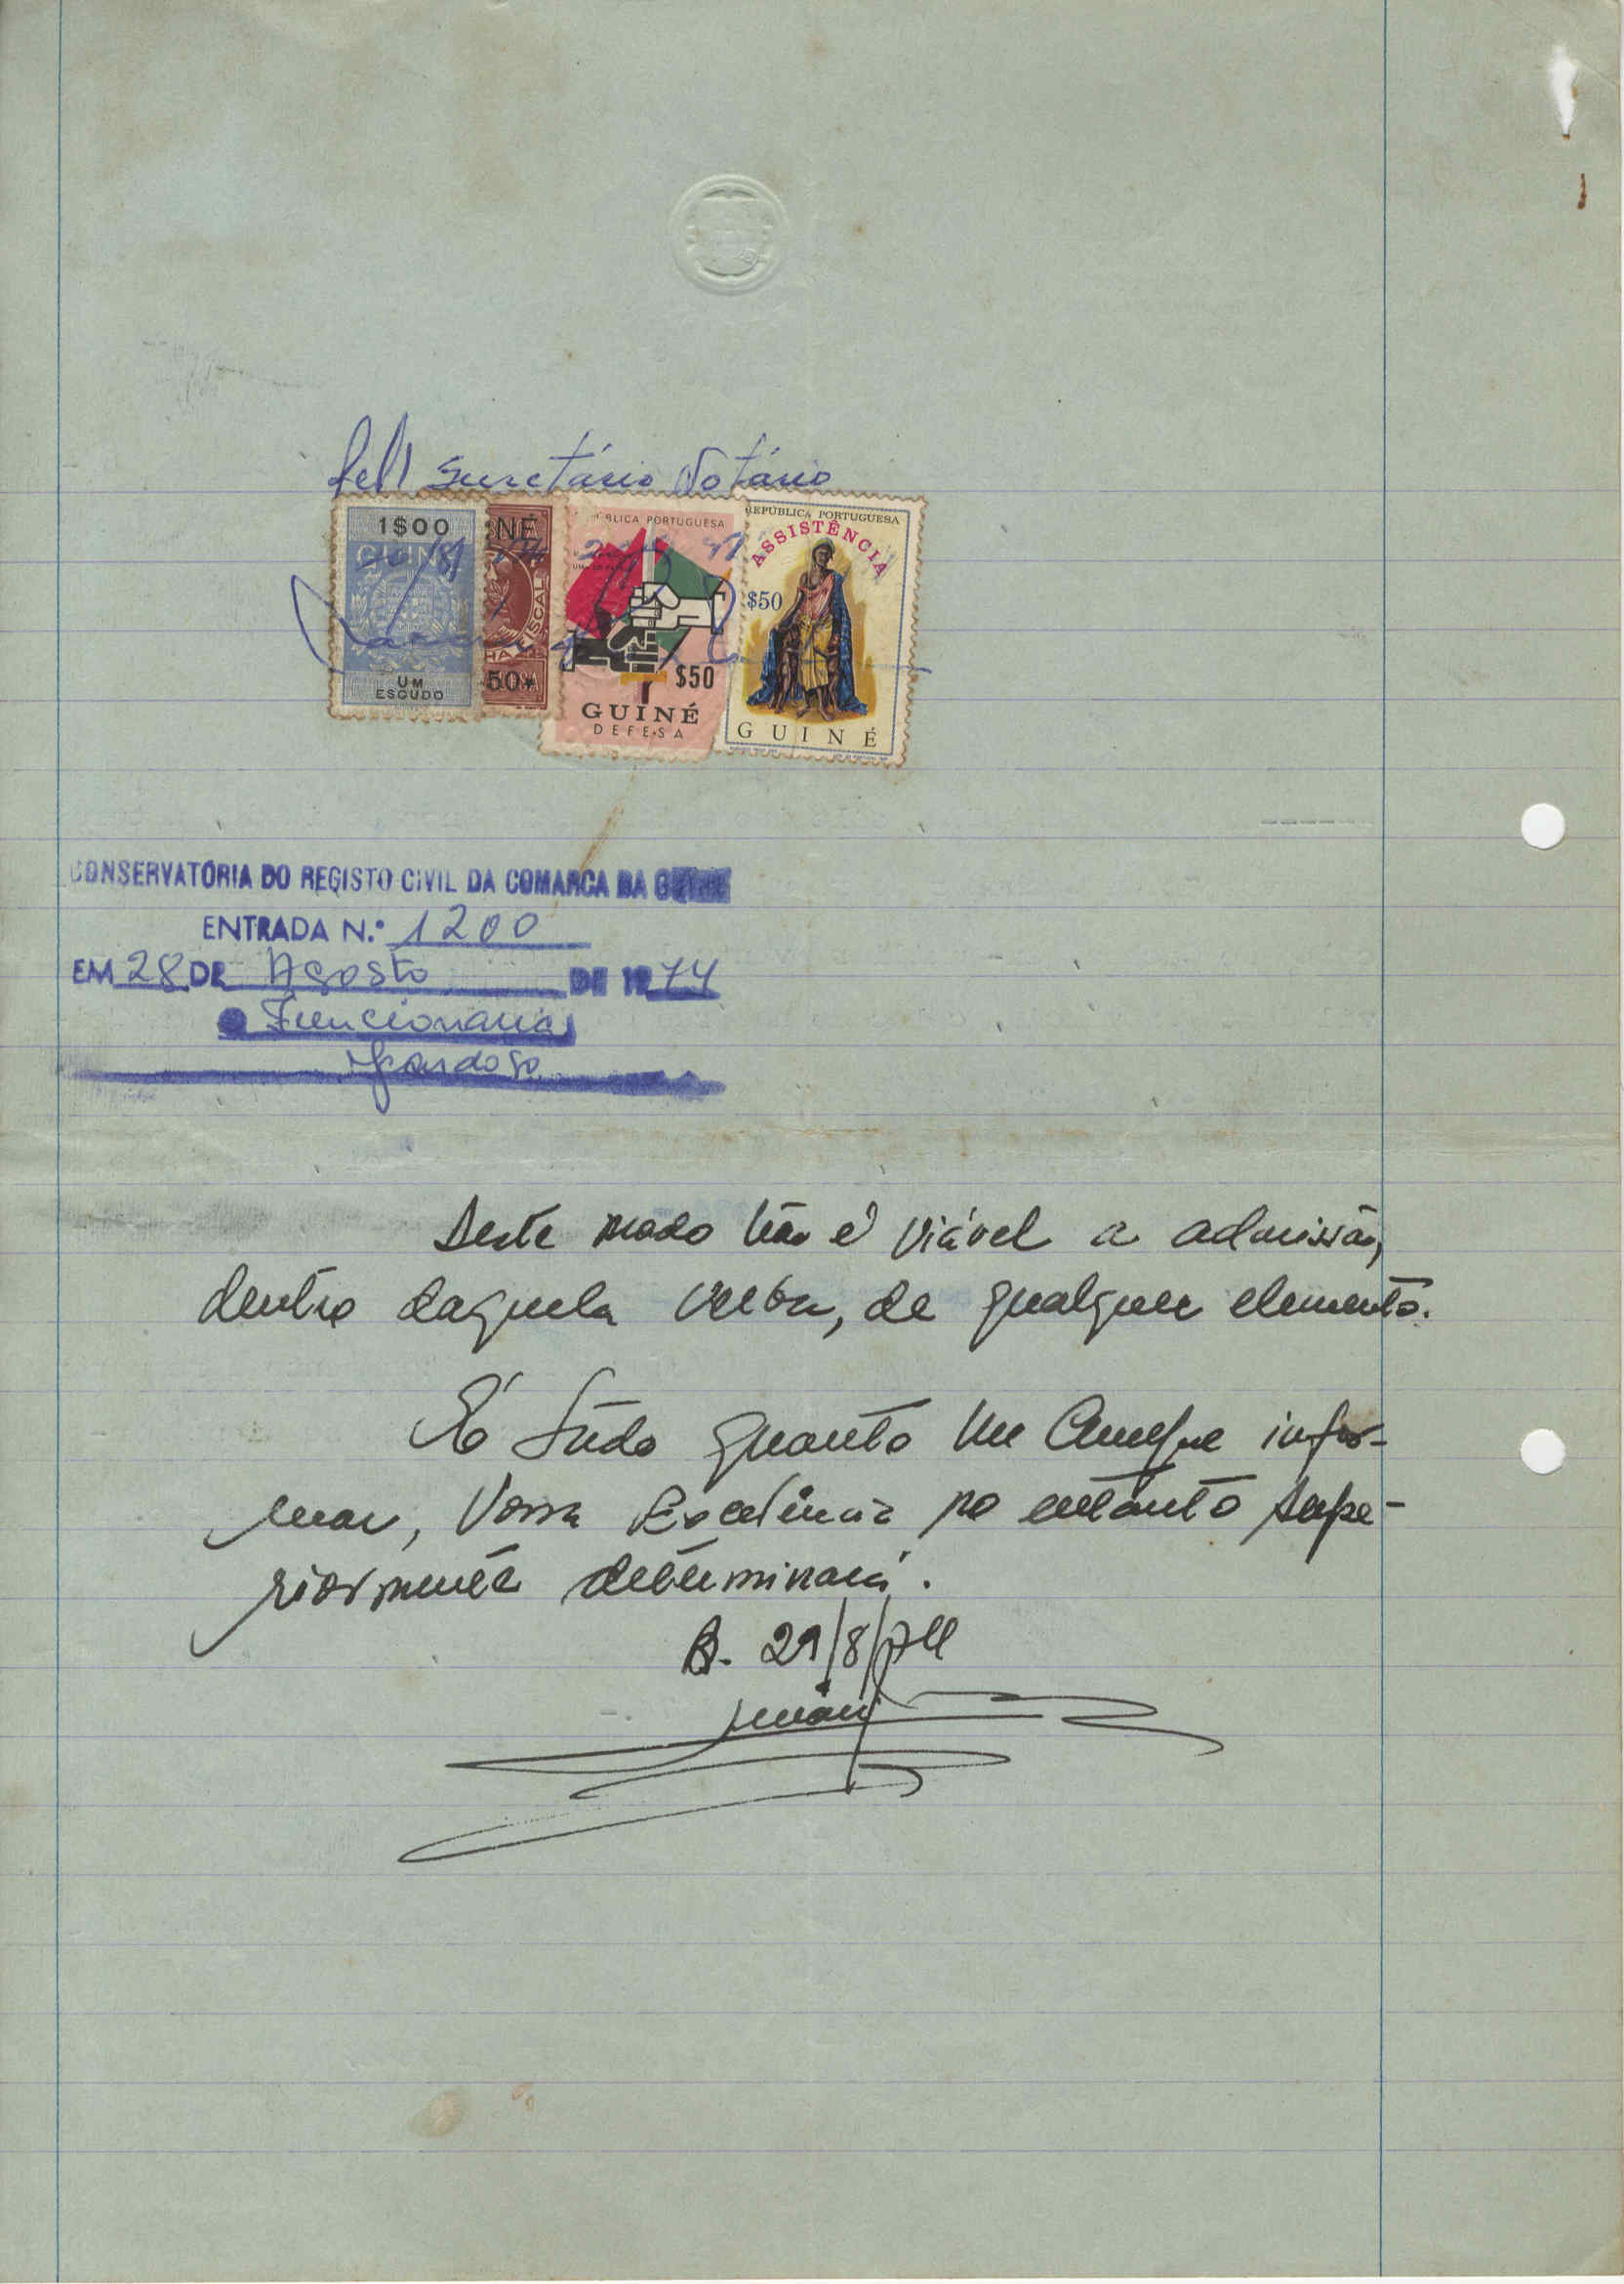 Pell Secretário Notário
1$00
GUINÉ
UM
ESCUDO
NÉ
FISCAL
50*
BLICA PORTUGUESA
$50
GUINÉ
DEFESA
REPÚBLICA PORTUGUESA
ASSISTÊNCIA
$50
GUINÉ
CONSERVATÓRIA DO REGISTO CIVIL DA COMARCA DA GUINÉ
ENTRADA N.º 1200
EM 28 DE Agosto DE 1974
Funcionaria
Cardoso
Deste modo não é viável a admissão,
dentro daquela verba, de qualquer elemento.
É tudo quanto me cumpre infor-
mar, Vossa Excelência no entanto supe-
riormente determinará.
B. 29/8/74